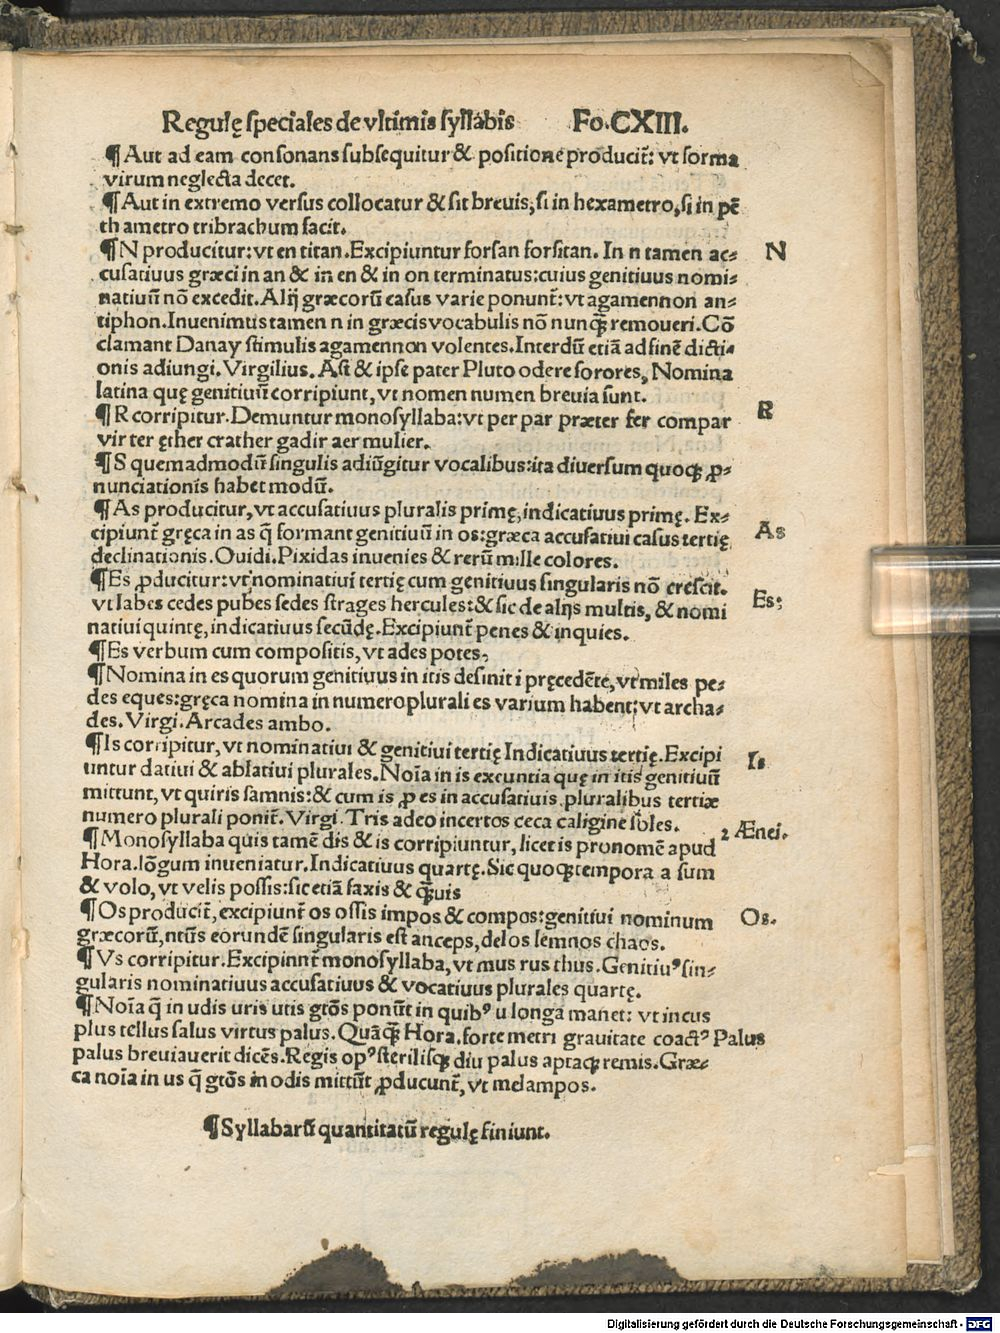 Regulę speciales de vltimis syllabis Fo.CXIII.
¶ Aut ad eam consonans subsequitur & positione producit̃: vt forma
virum neglecta decet.
¶ Aut in extremo versus collocatur & sit breuis, si in hexametro, si in pẽ
thametro tribrachum facit.
¶ N producitur: vt en titan. Excipiuntur forsan forsitan. In n tamen ac⸗ N
cusatiuus græci in an & in en & in on terminatus: cuius genitiuus nomi⸗
natiuũ nõ excedit. Alij græcorũ casus varie ponunt̃: vt agamennon an⸗
tiphon. Inuenimus tamen n in græcis vocabulis nõ nunq̃ꝫ remoueri. Cõ
clamant Danay stimulis agamennon volentes. Interdũ etiã ad finẽ dicti⸗
onis adiungi. Virgilius. Ast & ipse pater Pluto odere sorores, Nomina
latina quę genitiuũ corripiunt, vt nomen numen breuia sunt.
¶ R corripitur. Demuntur monosyllaba: vt per par præter fer compar R
vir ter ęther crather gadir aer mulier.
¶ S quemadmodũ singulis adiũgitur vocalibus: ita diuersum quoqꝫ ꝓ⸗
nunciationis habet modũ.
¶ As producitur, vt accusatiuus pluralis primę, indicatiuus primę. Ex⸗ As
cipiunt̃ gręca in as q̃ formant genitiuũ in os: græca accusatiui casus tertię
declinationis. Ouidi. Pixidas inuenies & rerũ mille colores.
¶ Es ꝓducitur: vt nominatiui tertię cum genitiuus singularis nõ crescit. Es;
vt labes cedes pubes sedes strages hercules: & sic de alijs multis, & nomi
natiui quintę, indicatiuus secũdę. Excipiunt̃ penes & inquies.
¶ Es verbum cum compositis, vt ades potes,
¶ Nomina in es quorum genitiuus in itis desinit i pręcedẽte, vt miles pe⸗
des eques: gręca nomina in numero plurali es varium habent; vt archa⸗
des. Virgi. Arcades ambo.
¶ Is corripitur, vt nominatiui & genitiui tertię Indicatiuus tertię. Excipi Is
untur datiui & ablatiui plurales. Noĩa in is exeuntia quę in itis genitiuũ
mittunt, vt quiris samnis: & cum is ꝓ es in accusatiuis pluralibus tertiæ
numero plurali ponit̃. Virgi. Tris adeo incertos ceca caligine soles.
¶ Monosyllaba quis tamẽ dis & is corripiuntur, licet is pronomẽ apud 2 Ænei.
Hora. lõgum inueniatur. Indicatiuus quartę. Sic quoqꝫ tempora a sum
& volo, vt velis possis: sic etiã faxis & q̃ꝫuis
¶ Os producit̃, excipiunt̃ os ossis impos & compos: genitiui nominum Os.
græcorũ, ntũs eorundẽ singularis est anceps, delos lemnos chaos.
¶ Vs corripitur. Excipinnt̃ monosyllaba, vt mus rus thus. Genitiuꝰ sin⸗
gularis nominatiuus accusatiuus & vocatiuus plurales quartę.
¶ Noĩa q̃ in udis uris utis gtõs ponũt in quibꝰ u longa manet: vt incus
plus tellus salus virtus palus. Quãq̃ꝫ Hora. forte metri grauitate coactꝰ Palus
palus breuiauerit dicẽs. Regis opꝰ sterilisqꝫ diu palus aptaqꝫ remis. Græ⸗
ca noĩa in us q̃ gtõs in odis mittũt ꝓducunt̃, vt melampos.
¶ Syllabarũ quantitatũ regulę finiunt.
Digitalisierung gefördert durch die Deutsche Forschungsgemeinschaft - DFG